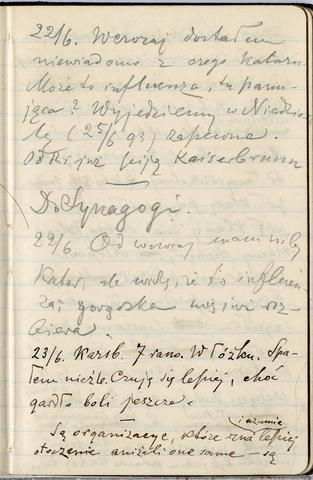 22/6. Wczoraj dostałem
niewiadomo z czego kataru
Może to influenza, tu panu-
jąca? Wyjedziemy w Niedzie-
lę (25/6 93) zapewne.
Od dziś już piję Kaiserbrunn
Do Synagogi.
22/6. Od wczoraj mam niby
Katar, ale widzę, że to influen-
za; gorączka mię już roz-
biera
23/6. Karlsb. 7 rano. W łóżku. Spa-
łem nieźle. Czuję się lepiej, choć
gardło boli jeszcze.
i rozumie
Są organizacye, które zna lepiej
otoczenie aniżeli one same – są